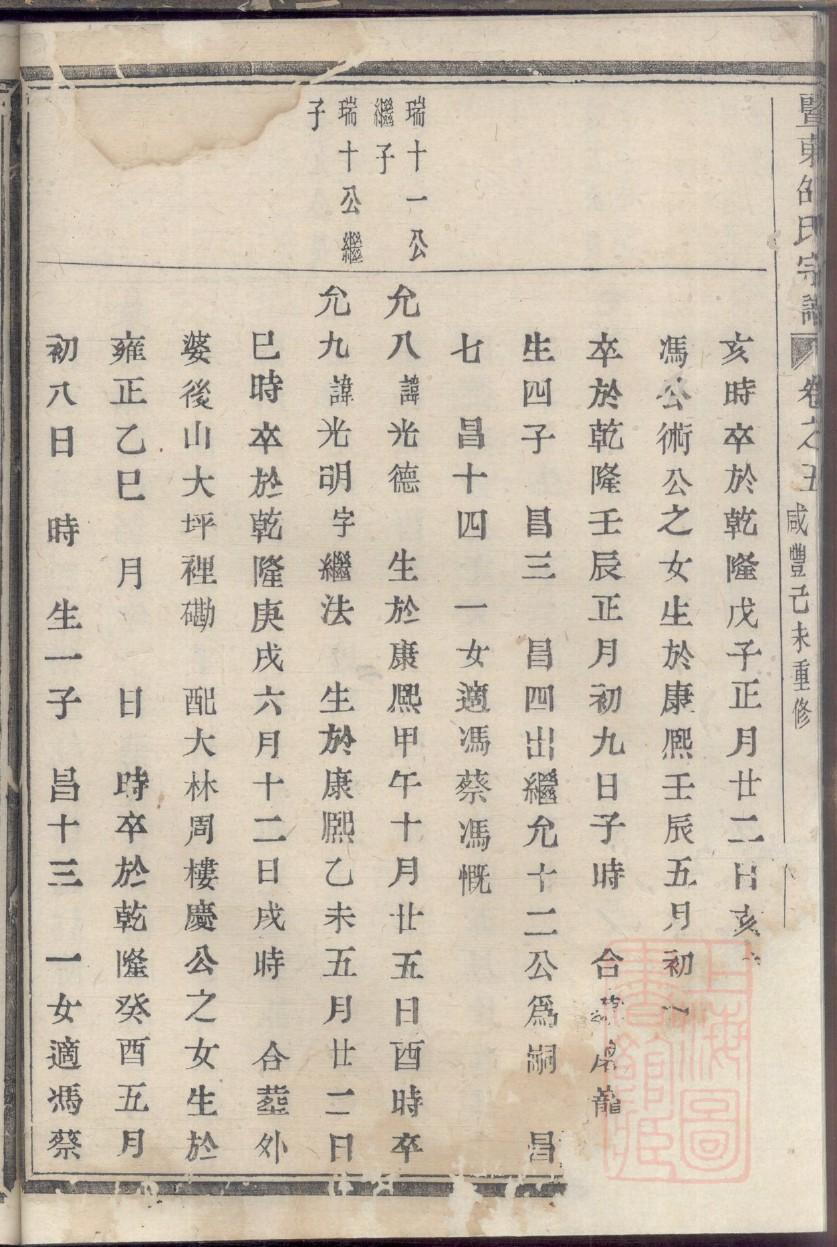 暨東邵氏宗譜 卷之五 咸豐己未重修
亥時卒於乾隆戊子正月廿二日亥
馮公術公之女生於康熙壬辰五月初
卒於乾隆壬辰正月初九日子時 合 龍
生四子 昌三 昌四出繼允十二公爲嗣 昌
七 昌十四 一女適馮蔡馮慨
瑞十一公
繼子
允八諱光德 生於康熙甲午十月廿五日酉時卒
瑞十公繼
子
允九諱光明字繼法 生於康熙乙未五月廿二日
巳時卒於乾隆庚戌六月十二日戌時 合葬外
婆後山大坪裡磡 配大林周樓慶公之女生於
雍正乙巳 月 日 時卒於乾隆癸酉五月
初八日 時 生一子 昌十三 一女適馮蔡
上海圖書館藏